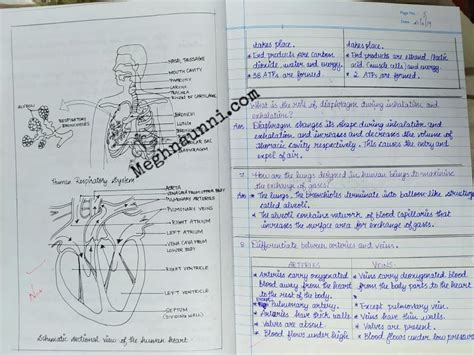 NASAL PASSAGE
MOUTH CAVITY
PHARYNX
LARYNX
TRACHEA
RINGS OF CARTILAGE
ALVEOLI
RESPIRATORY
BRONCHIOLES
BRONCHI
LUNG
DIAPHRAGM
Human Respiratory System
AORTA
VENA CAVA FROM UPPER BODY
PULMONARY ARTERIES
PULMONARY VEINS
RIGHT ATRIUM
LEFT ATRIUM
VENA CAVA FROM
LOWER BODY
RIGHT VENTRICLE
LEFT VENTRICLE
SEPTUM
(DIVIDING WALL)
Schematic sectional view of the human heart
Meghnaunni.com
Page No. 5
Date
takes place.
* End products are carbon
dioxide, water and energy.
* 38 ATPs are formed.
takes place.
* End products are ethanol / lactic
acid (muscle cells) and energy.
* 2 ATPs are formed.
What is the role of diaphragm during inhalation and
exhalation?
Ans. Diaphragm changes its shape during inhalation and
exhalation and increases and decreases the volume of
thoracic cavity respectively. This causes the entry and
expel of air.
7. How are the lungs designed in human beings to maximise
the exchange of gases?
Ans. * The lungs, the bronchioles terminate into balloon-like structures
called alveoli.
* The alveoli contains network of blood capillaries that
increases the surface area for exchange of gases.
8. Differentiate between arteries and veins.
ARTERIES
* Arteries carry oxygenated
blood away from the heart
to the rest of the body.
Except pulmonary artery.
* Arteries have thick walls.
* Valves are absent.
* Blood flows under high
VEINS
* Veins carry deoxygenated blood
from the body parts to the heart
* Except pulmonary vein.
* Veins have thin walls.
* Valves are present.
* Blood flows under low pressure